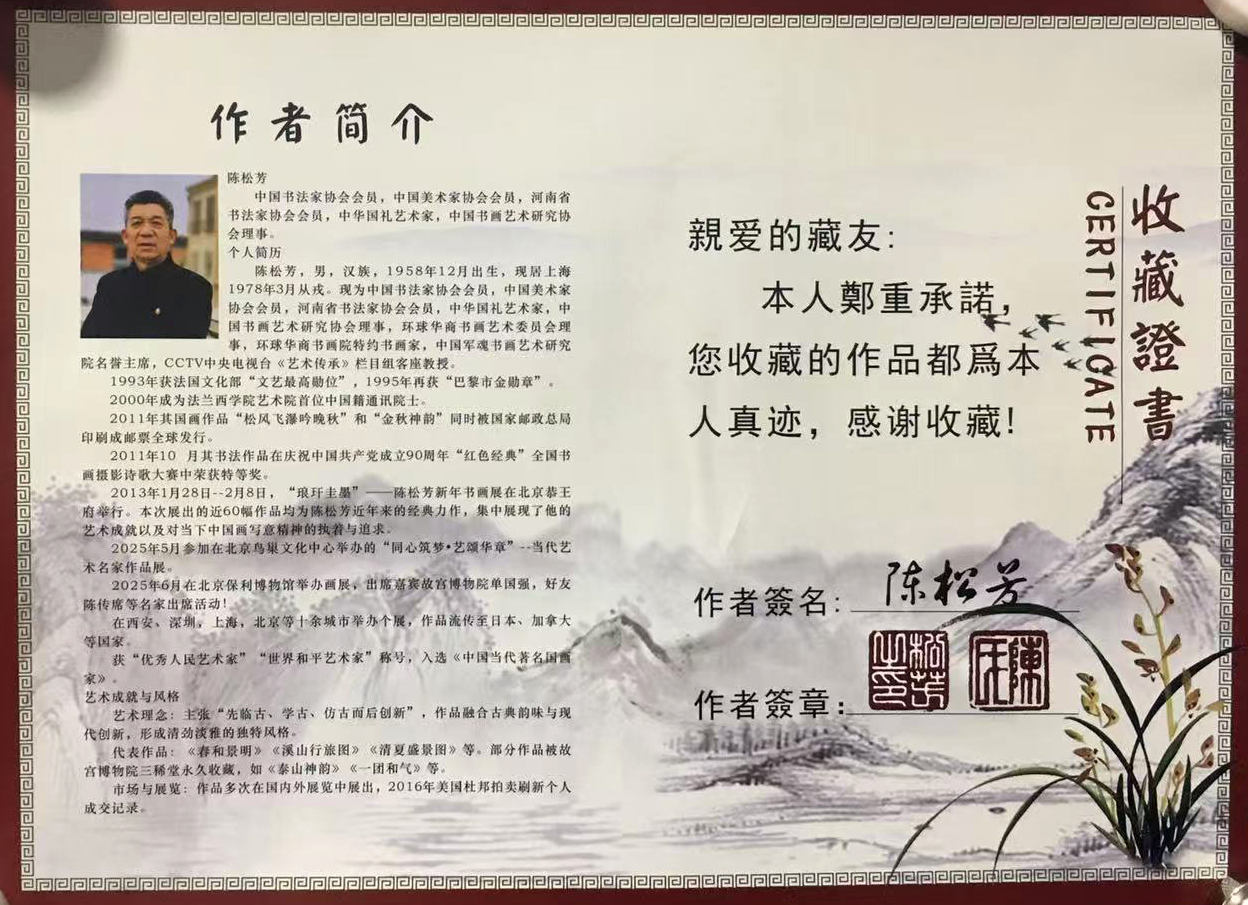 作者简介
陈松芳
中国书法家协会会员，中国美术家协会会员，河南省
书法家协会会员，中华国礼艺术家，中国书画艺术研究协
会理事。
个人简历
陈松芳，男，汉族，1958年12月出生，现居上海
1978年3月从戎。现为中国书法家协会会员，中国美术家
协会会员，河南省书法家协会会员，中华国礼艺术家，中
国书画艺术研究协会理事，环球华商书画艺术委员会理
事，环球华商书画院特约书画家，中国军魂书画艺术研究
院名誉主席，CCTV中央电视台《艺术传承》栏目组客座教授。
1993年获法国文化部“文艺最高勋位”，1995年再获“巴黎市金勋章”。
2000年成为法兰西学院艺术院首位中国籍通讯院士。
2011年其国画作品“松风飞瀑吟晚秋”和“金秋神韵”同时被国家邮政总局
印刷成邮票全球发行。
2011年10 月其书法作品在庆祝中国共产党成立90周年“红色经典”全国书
画摄影诗歌大赛中荣获特等奖。
2013年1月28日--2月8日，“琅玕圭墨”——陈松芳新年书画展在北京恭王
府举行。本次展出的近60幅作品均为陈松芳近年来的经典力作，集中展现了他的
艺术成就以及对当下中国画写意精神的执着与追求。
2025年5月参加在北京鸟巢文化中心举办的“同心筑梦•艺颂华章”--当代艺
术名家作品展。
2025年6月在北京保利博物馆举办画展，出席嘉宾故宫博物院单国强，好友
陈传席等名家出席活动！
在西安、深圳，上海，北京等十余城市举办个展，作品流传至日本、加拿大
等国家。
获“优秀人民艺术家”“世界和平艺术家”称号，入选《中国当代著名国画
家》。
艺术成就与风格
艺术理念：主张“先临古、学古、仿古而后创新”，作品融合古典韵味与现
代创新，形成清劲淡雅的独特风格。
代表作品：《春和景明》《溪山行旅图》《清夏盛景图》等。部分作品被故
宫博物院三稀堂永久收藏，如《泰山神韵》《一团和气》等。
市场与展览：作品多次在国内外展览中展出，2016年美国杜邦拍卖刷新个人
成交记录。
收藏證書
CERTIFICATE
親爱的藏友：
本人鄭重承諾，
您收藏的作品都爲本
人真迹，感谢收藏！
作者簽名：陈松芳
作者簽章：
陳氏
松芳之印